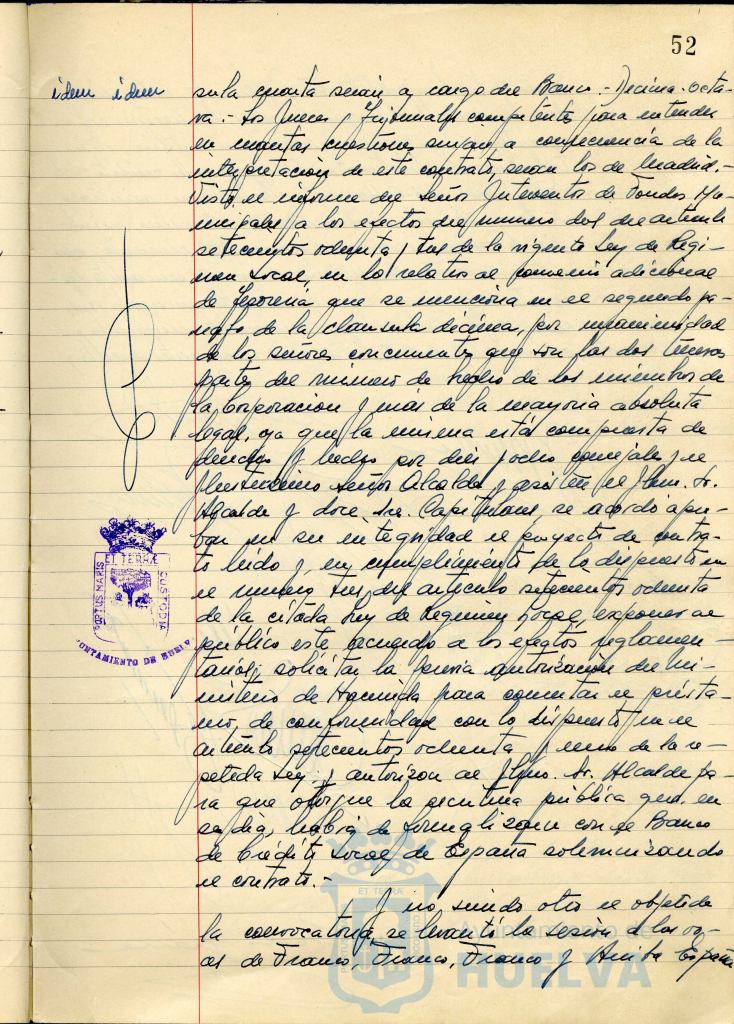 52
idem idem
en la cuenta serán a cargo del Banco.- Décima-octa-
va.- Los Jueces y Tribunales competentes para entender
en cuantas cuestiones surjan a consecuencia de la
interpretación de este contrato, serán los de Madrid.-
Visto el informe del Señor Interventor de Fondos Mu-
nicipales a los efectos del número dos del artículo
setecientos ochenta y tres de la vigente Ley de Régi-
men Local, en lo relativo al convenio adicional
de Tesorería que se menciona en el segundo pá-
rrafo de la cláusula décima, por unanimidad
de los señores concurrentes que son las dos terceras
partes del número de hecho de los miembros de
la Corporación y más de la mayoría absoluta
legal, ya que la misma está compuesta de
derecho y hecho por diez y ocho concejales y el
Ilustrísimo Señor Alcalde, y asisten el Ilmo. Sr.
Alcalde y doce Sres. Capitulares, se acordó apro-
bar en su integridad el proyecto de contra-
to leído y, en cumplimiento de lo dispuesto en
el número tres del artículo setecientos ochenta
de la citada Ley de Régimen Local, exponer al
público este acuerdo a los efectos reglamen-
tarios; solicitar la previa autorización del Mi-
nisterio de Hacienda para concertar el présta-
mo, de conformidad con lo dispuesto en el
artículo setecientos ochenta y uno de la re-
petida Ley; y autorizar al Iltmo. Sr. Alcalde pa-
ra que otorgue la escritura pública que, en
su día, habrá de formalizarse con el Banco
de Crédito Local de España solemnizando
el contrato.-
Y no siendo otro el objeto de
la convocatoria, se levantó la sesión a las vo-
ces de Franco, Franco, Franco y Arriba España
PORTUS MARIS ET TERRÆ CUSTODIA
AYUNTAMIENTO DE HUELVA
Ayuntamiento de
HUELVA